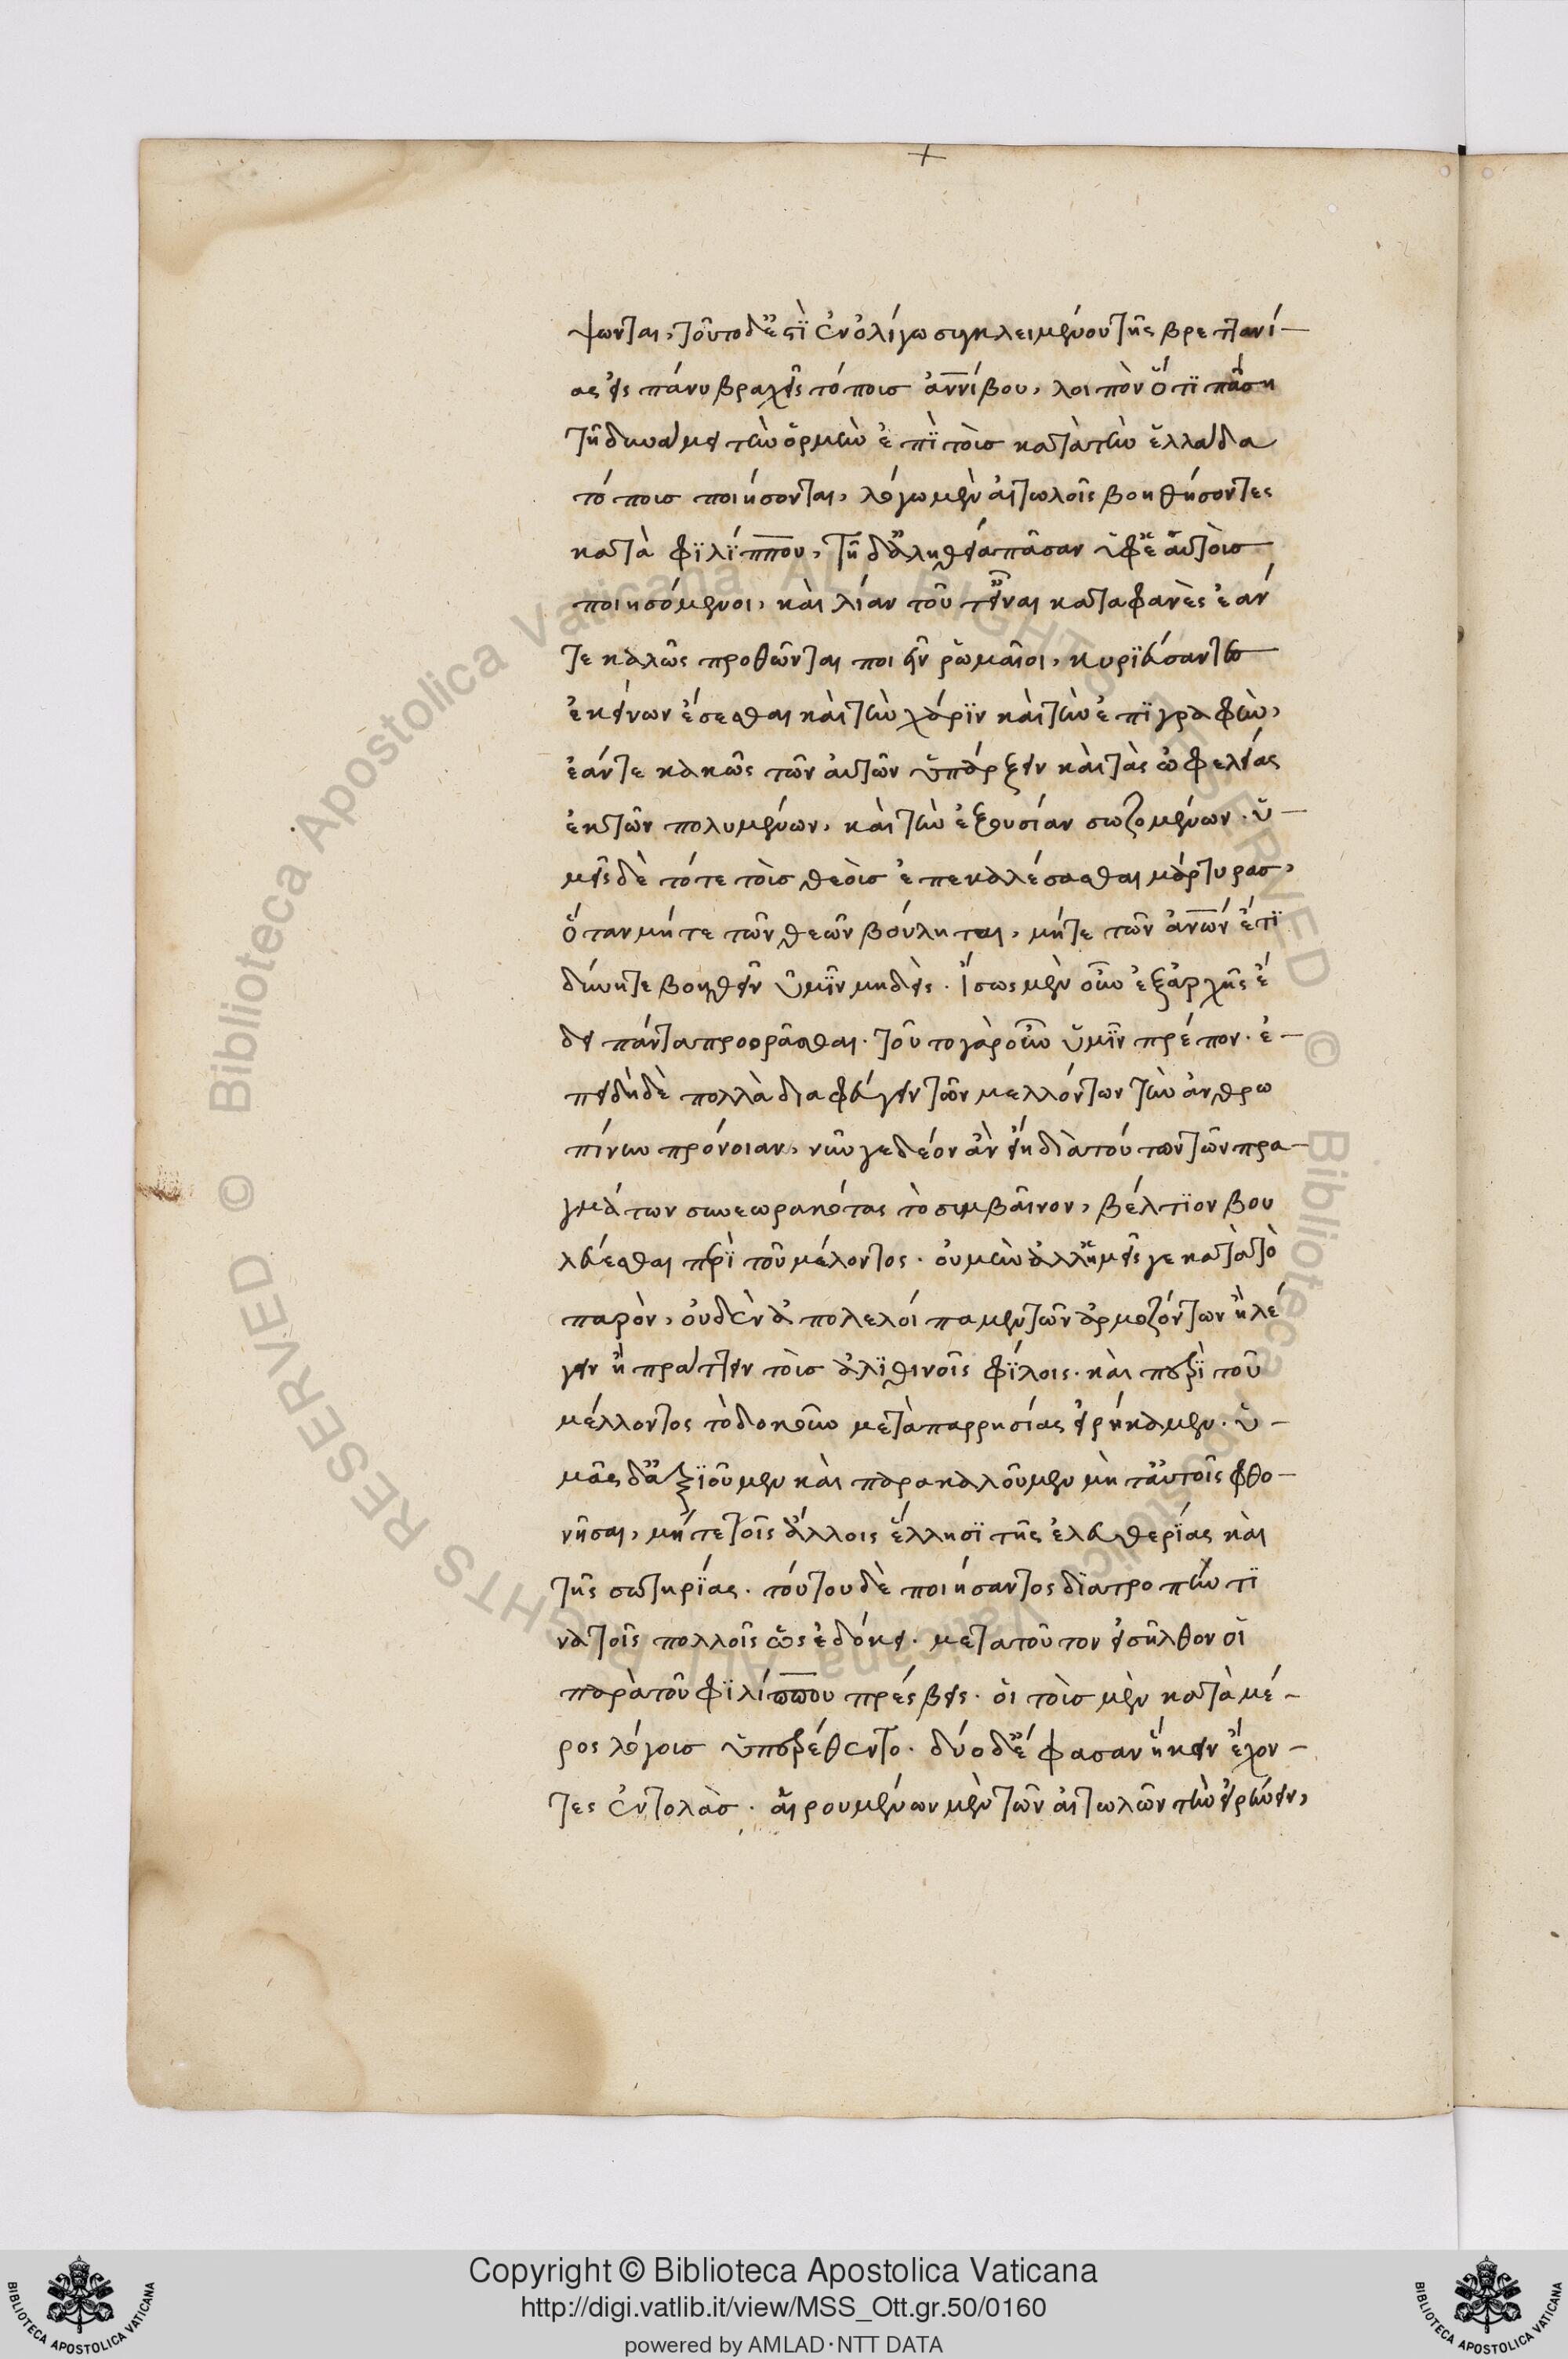 ψωνται, τοῦτο δ᾽ ἔστϊ ἐν ὀλίγω συγκλειμένου τῆς βρεττανί–
ας εἰς πάνυ βραχεῖς τόποισ ἀννίβου, λοιπὸν ὅτϊ πάση
τῆ δυνάμει τὴν ὁρμὴν ἐπϊ τοῖσ κατὰ τὴν ἑλλάδα
τόποισ ποιήσονται, λόγω μὲν αἰτωλοῖς βοηθήσοντες
κατὰ φϊλίππου, τῆ δ᾽ ἀληθεία πᾶσαν ὑφ᾽ ἑαυτοῖσ
ποιησόμενοι, καὶ λίαν τοῦτ᾽ εἶναι καταφανὲς ἐάν
τε καλῶς προθῶνται ποιεῖν ῥωμαῖοι, κυρϊεύσαντεσ
ἐκείνων ἔσεσθαι καὶ τὴν χάρϊν καὶ τὴν ἐπϊγραφὴν,
ἐάντε κακῶς τῶν αὐτῶν ὑπάρξειν καὶ τὰς ὠφελείας
ἐκ τῶν πολυμένων, καὶ τὴν ἐξουσίαν σωζομένων. ὑ–
μεῖς δὲ τότε τοῖσ θεοῖσ ἐπεκαλέσασθαι μάρτυρασ,
ὅταν μήτε τῶν θεῶν βούληται, μήτε τῶν ἀνων ἔτϊ
δύνητε βοηθεῖν ὑμῖν μηδεὶς. ἴσως μὲν οὖν ἐξ ἀρχῆς ἔ
δει πάντα προορᾶσθαι. τοῦτο γὰρ οὖν ὑμῖν πρέπον. ἐ–
πειδὴ δὲ πολλὰ διαφεύγειν τῶν μελλόντων τὴν ἀνθρω
πίνην πρόνοιαν, νῦν γε δέον ἂν εἴη διὰ τούτων τῶν πρα–
γμάτων συνεωρακότας τὸ συμβαῖνον, βέλτϊον βου
λεύεσθαι περϊ τοῦ μέλοντος. οὐ μὴν ἀλλ᾽ ἡμεῖς γε κατὰ τὸ
παρὸν, οὐδὲν ἀπολελοίπαμεν τῶν ἁρμοζόντων ἢ λέ
γειν ἢ πράττειν τοῖσ ἀλϊθινοῖς φϊλοις. καὶ περϊ τοῦ
μέλλοντος τὸ δοκοῦν μετὰ παρρησίας εἰρήκαμεν. ὑ–
μᾶς δ᾽ ἀξϊοῦμεν καὶ παρακαλοῦμεν μὴ τ᾽ αὐτοῖς φθο–
νῆσαι, μήτε τοῖς ἄλλοις ἕλλησϊ τῆς ἐλευθερίας καὶ
τῆς σωτηρϊας. τούτου δὲ ποιήσαντος δϊατροπὴν τϊ
νὰ τοῖς πολλοῖς ὡς ἐδόκει. μετα τοῦτον εἰσῆλθον οἱ
παρὰ τοῦ φϊλίππου πρέσβεις. οἱ τοῖσ μὲν κατὰ μέ–
ρος λόγοισ ὑπερέθεντο. δύο δ᾽ ἔφασαν ἥκειν ἔχον–
τες ἐντολὰσ. αἱρουμένων μὲν τῶν αἰτωλῶν τὴν εἰρήνειν,
Copyright © Biblioteca Apostolica Vaticana
http://digi.vatlib.it/view/MSS_Ott.gr.50/0160
powered by AMLAD·NTT DATA